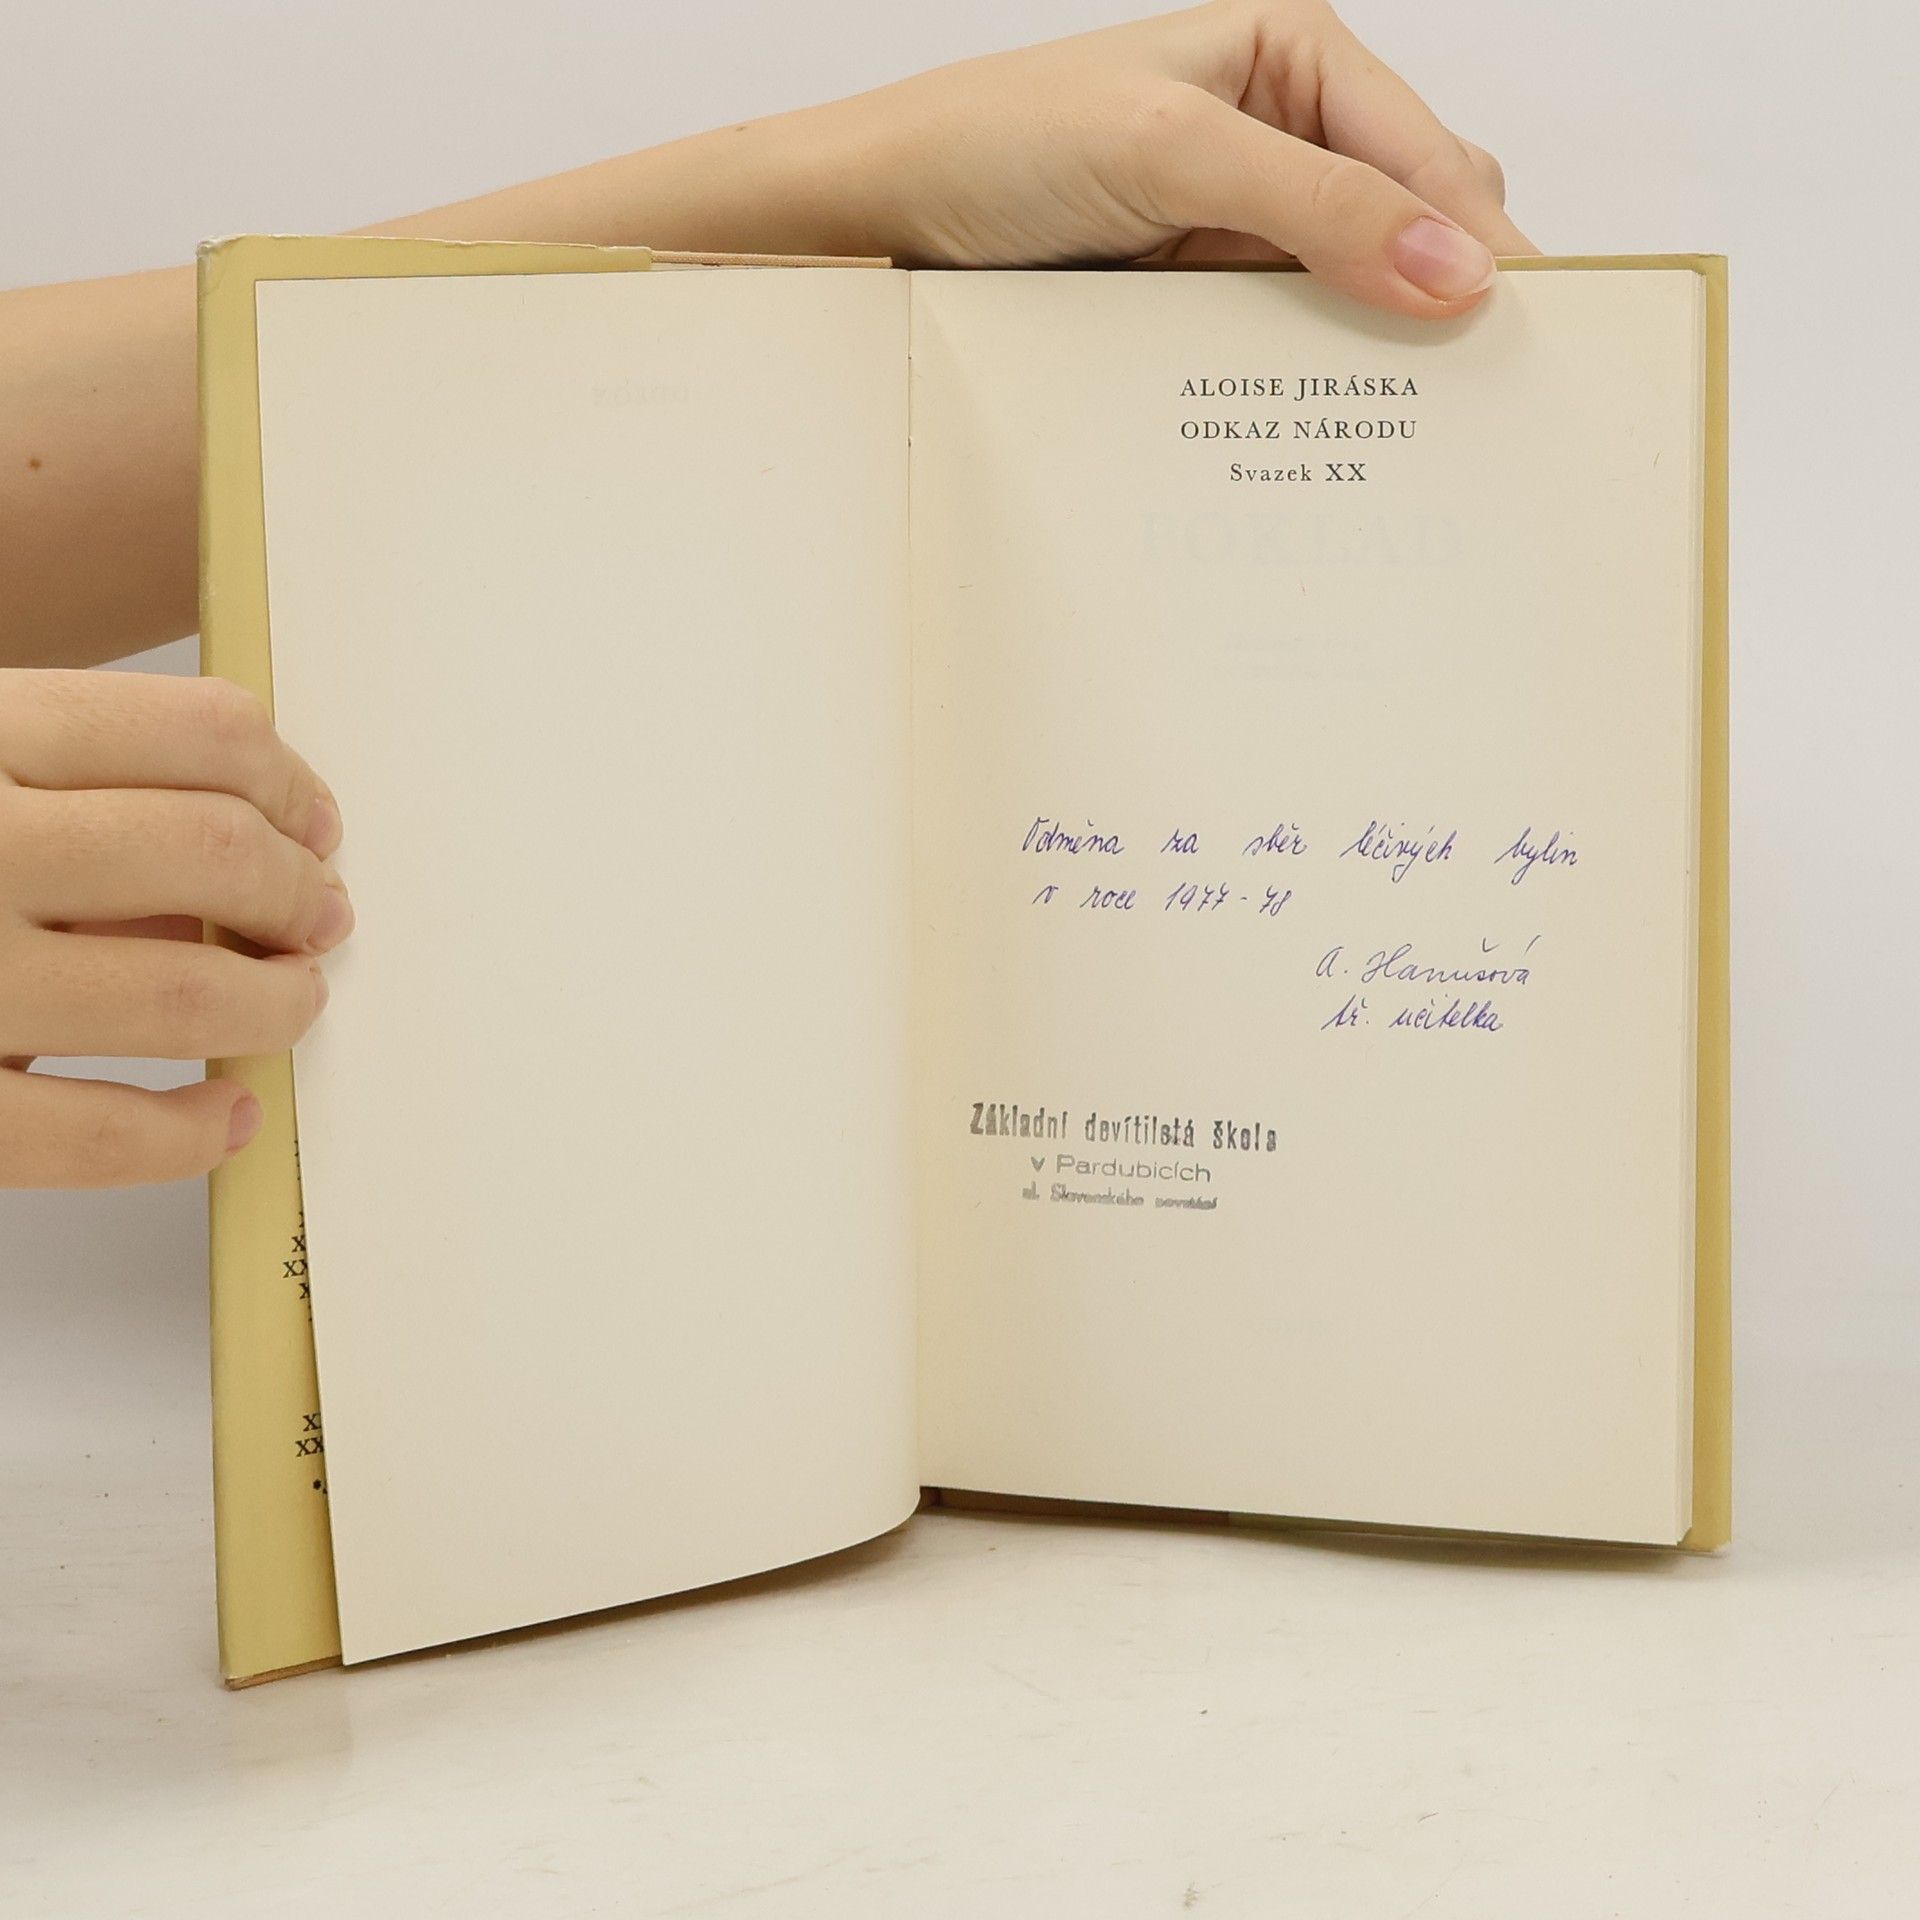 ALOISE JIRÁSKA
ODKAZ NÁRODU
Svazek XX
POKLAD
Odměna za sběr léčivých bylin
v roce 1977-78
A. Hanušová
tř. učitelka
Základní devítiletá škola
v Pardubicích
ul. Slovenského povstání
X
XX
X
X
XX